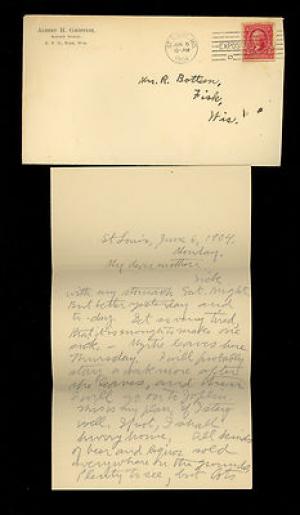 ALBERT H. GRIFFITH,
Mrs. R. Bottson,
Fisk,
Wis.
St Louis, June 6, 1904.
Monday.
My dear mother:
Sick
with my stomach Sat. night
But better yesterday and
to-day. Get so very tired
that it is enough to make one
sick. Myrtle leaves here
Thursday. I will probably
stay a week more after
she leaves, and then
I will go on to Joplin.
This is my plan if I stay
well. If not, I shall
hurry home. All kinds
of beer and liquor sold
everywhere on the grounds
Plenty to see, but lots